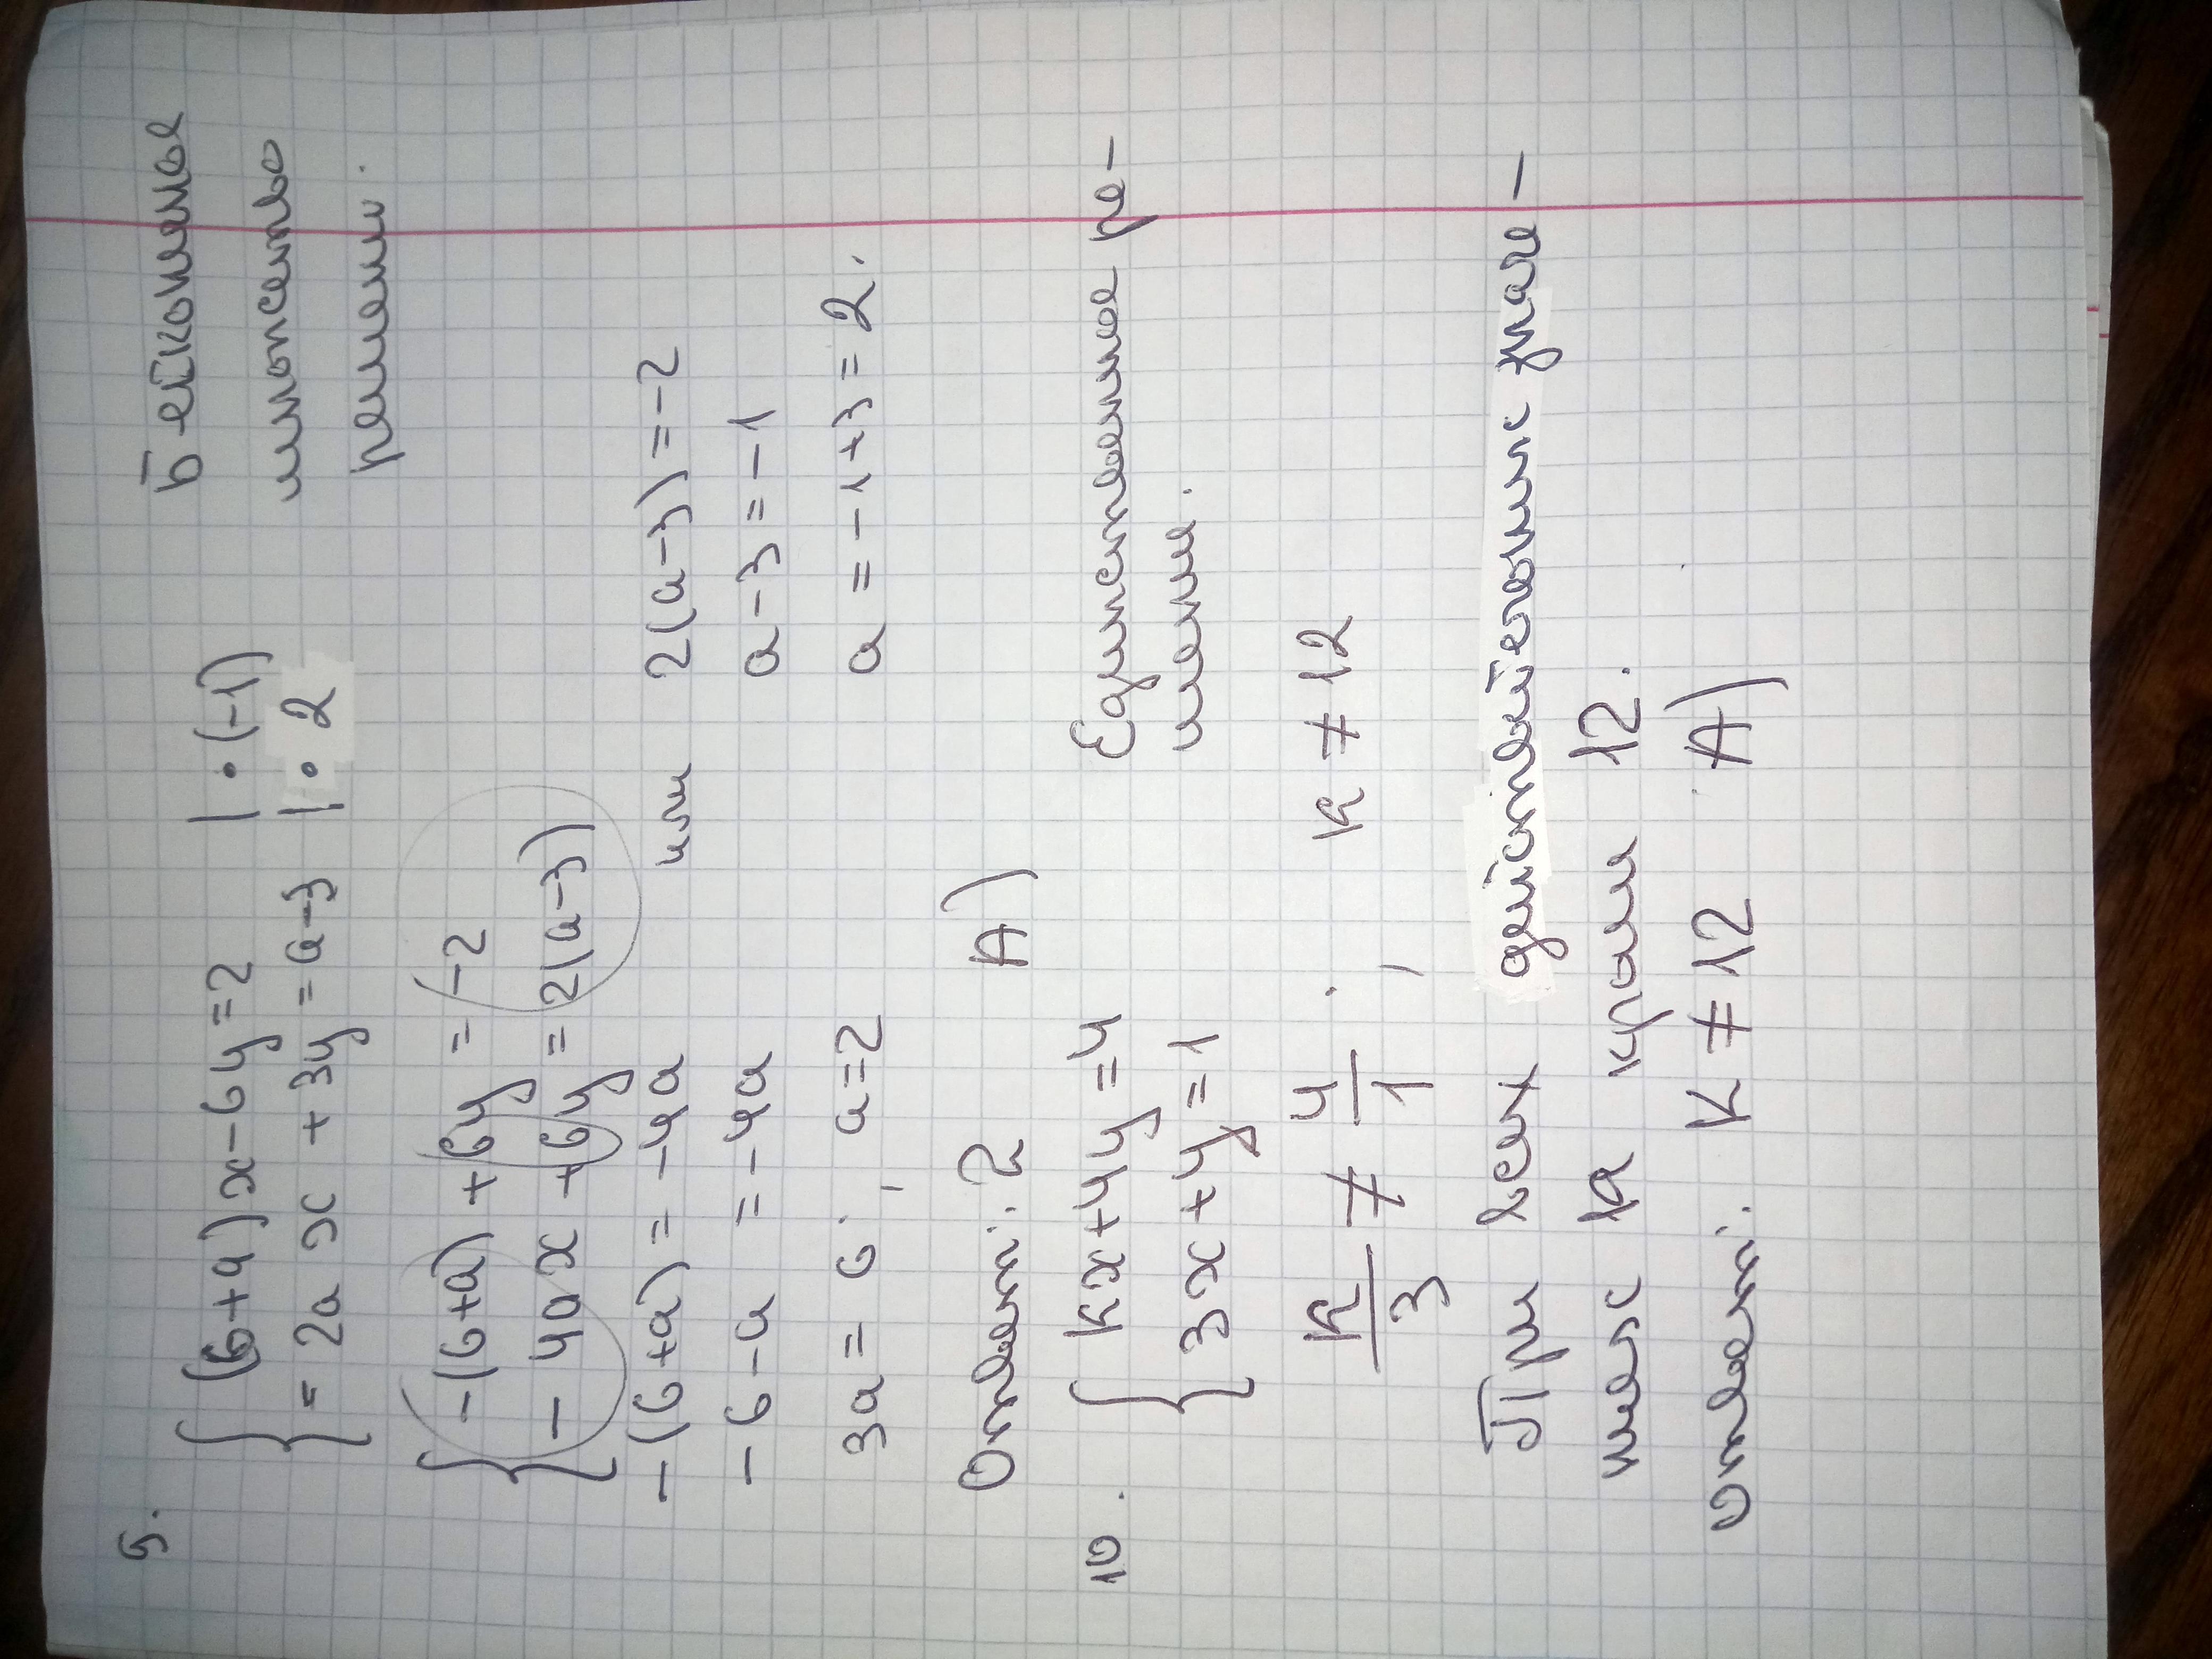 9.
{ (6+a)x-6y=2 |•(-1) Бесконечное
= 2a x +3y=a-3 |•2 множество
решении.
{ -(6+a) +6y = -2
- 4ax +6y=2(a-3)
-(6+a) = -4a или 2(a-3)=-2
-6-a = -4a a-3=-1
3a = 6; a=2 a=-1+3=2.
Ответ: 2 A)
10. { kx+4y=4 Единственное ре-
3x+y=1 шение.
k/3 ≠ 4/1; k≠12
При всех действительных значе-
ниях k кроме 12.
ответ: K≠12 A)